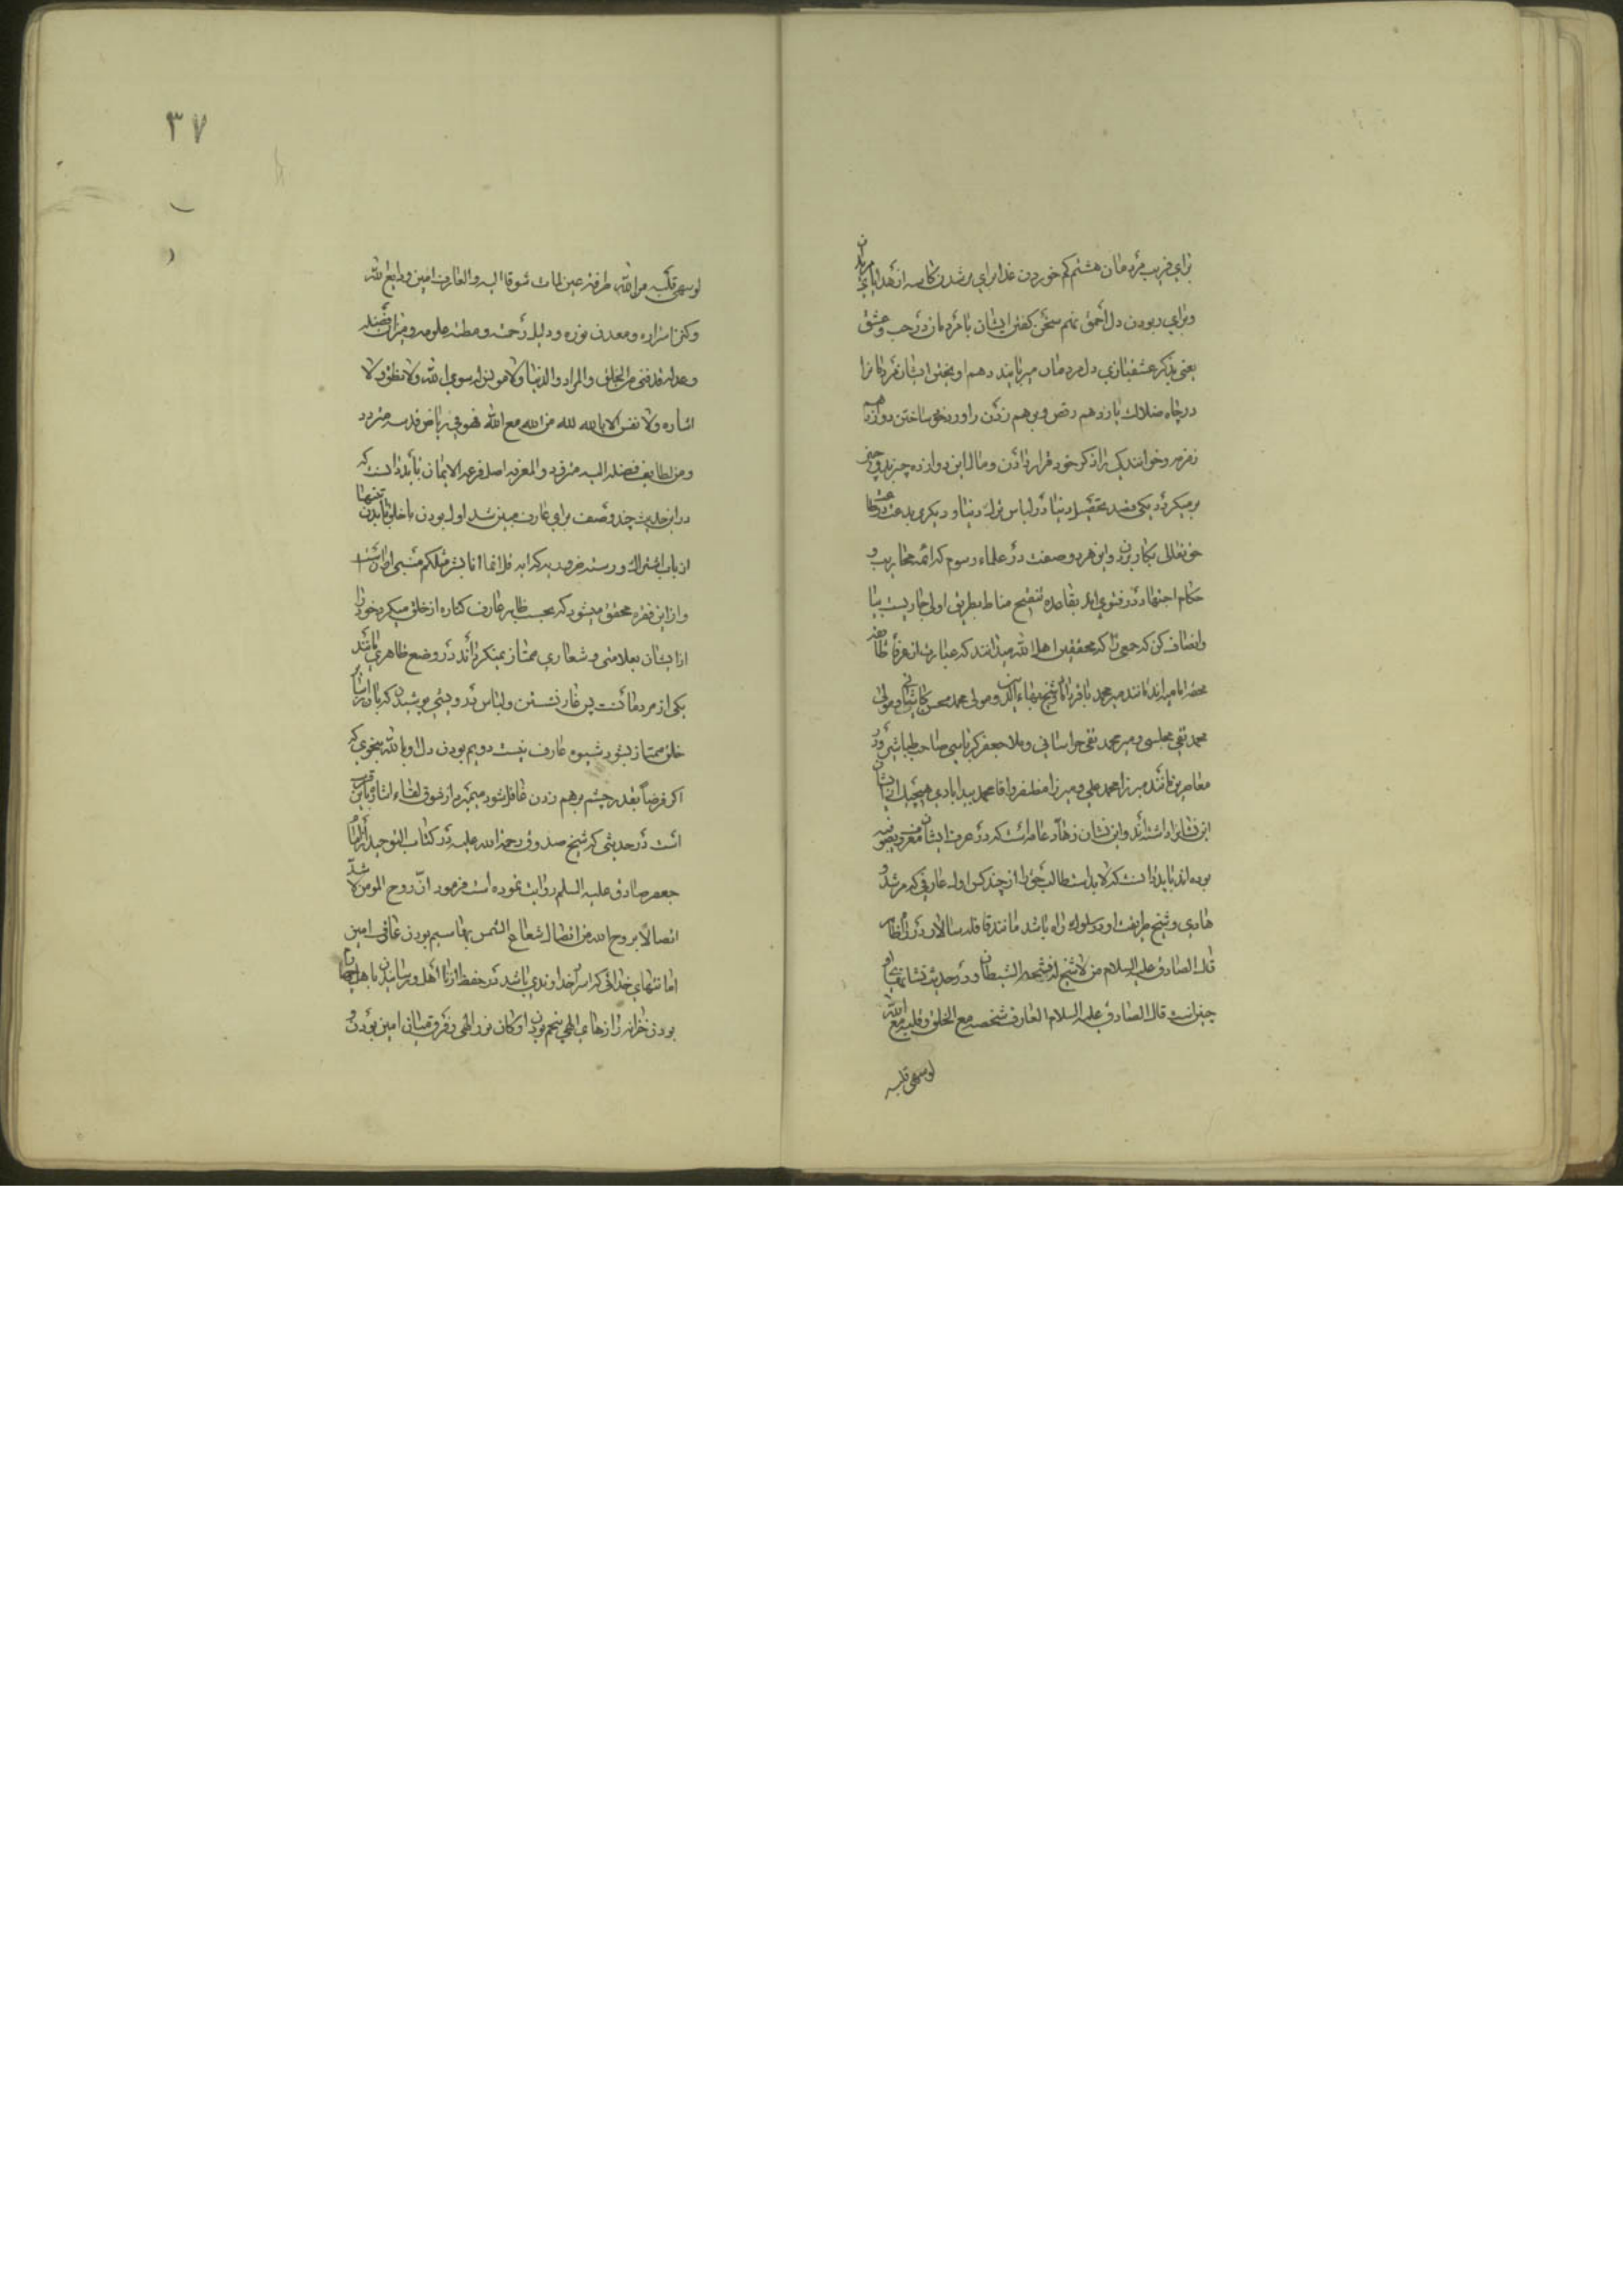 برای فریب مردمان هشتم کم خوردن غذا برای پر شدن کاسه از هدایای مریدان
و برای ربودن دل احمق نهم سخن گفتن ایشان با مردمان در حب و عشق
یعنی بذکر عشقبازی دل مردمان میربایند دهم اویختن ایشان مردمانرا
در چاه ضلالت یازدهم رقص و برهم زدن و اوراد نحو ساختن دوازدهم
زمزمه و خوانندگی را ذکر خود قرار دادن و مال این دوازده چیز بدو چیز
برمیگردد یکی قصد تحصیل دنیا در لباس ترک دنیا و دیگری بدعت در طاعت
حق تعالی بکار بردن و این هر دو صفت در علماء رسوم که ائمه محاریب و
حکام اجتهاد در فتوی اند بقاعده تنقیح مناط بطریق اولی جاریست بیا
و انصاف کن که جمعی را که محققین اهل الله میدانند که عبارت از عرفاء طایفه
محقه امامیه اند مانند میر محمد باقر داماد و شیخ بهاء الدین و مولی محمد محسن کاشانی و مولی
محمد تقی مجلسی و میر محمد تقی خراسانی و ملا جعفر کرباسی صاحب طباشیر و در
معاصرین مانند میرزا محمد علی و میرزا مظفر و اقا محمد بیدابادی هیچیک از ایشان
این نشانرا داشته اند و این نشان زهاد عامه است که در عرف ایشان معروف بصوفیه
بوده اند باید دانست که لابد است طالب حق را از چند کس اول عارفی که مرشد و
هادی و شیخ طریقت او در سلوک راه باشد مانند قافله سالار در راه ظاهر
قال الصادق علیه السلام من لا شیخ له فشیخه الشیطان و در حدیث نشانهای او
چنین است قال الصادق علیه السلام العارف شخصه مع الخلق و قلبه مع الله
لو سهی قلبه
۳۷
لو سهی قلبه من الله طرفة عین لمات شوقا الیه و العارف امین ودایع الله
و کنز اسراره و معدن نوره و دلیل رحمته و مطیة علومه و میزان فضله
و عدله قد غنی عن الخلق و المراد و الدنیا و لا مونس له سوی الله و لا نطق و لا
اشاره و لا نفس الا بالله لله من الله مع الله فهو فی ریاض قدسه متردد
و من لطایف فضله الیه متزود و المعرفه اصل فرعه الایمان باید دانست که
در این حدیث چند وصف برای عارف مبین شد اول بودن با خلق با بدن تنها
از باب اشتراک و رسته فرود به که ایه قل انما انا بشر مثلکم مشیی اوان است
و از این فقره محقق میشود که بحسب ظاهر عارف کناره از خلق میگیرد خود را
از ایشان بعلامتی و شعاری ممتاز نمیکرداند در وضع ظاهری باشد
یکی از مردمانست پس غار نشستن و لباس بد و پشم پوشیدن که باو از سایر
خلق ممتاز بشود شیوه عارف نیست دویم بودن دل او با الله بنحوی که
اکر فرضاً بقدر چشم برهم زدن غافل شود میمیرد از شوق لقاء اشاره باین قرب
است در حدیثی که شیخ صدوق رحمة الله علیه در کتاب التوحید از امام
جعفر صادق علیه السلم روایت نموده است فرمود انّ روح المومن لاشدّ
اتصالاً بروح الله من اتصال شعاع الشمس بها سیم بودن عارف امین
امانتهای خدائی که اسرار خداوندی باشد در حفظ از نا اهل و رسانیدن باهل چهارم
بودن خزانه رازهای الهی پنجم بودن او کان نور الهی و فرق میانه امین بودن و